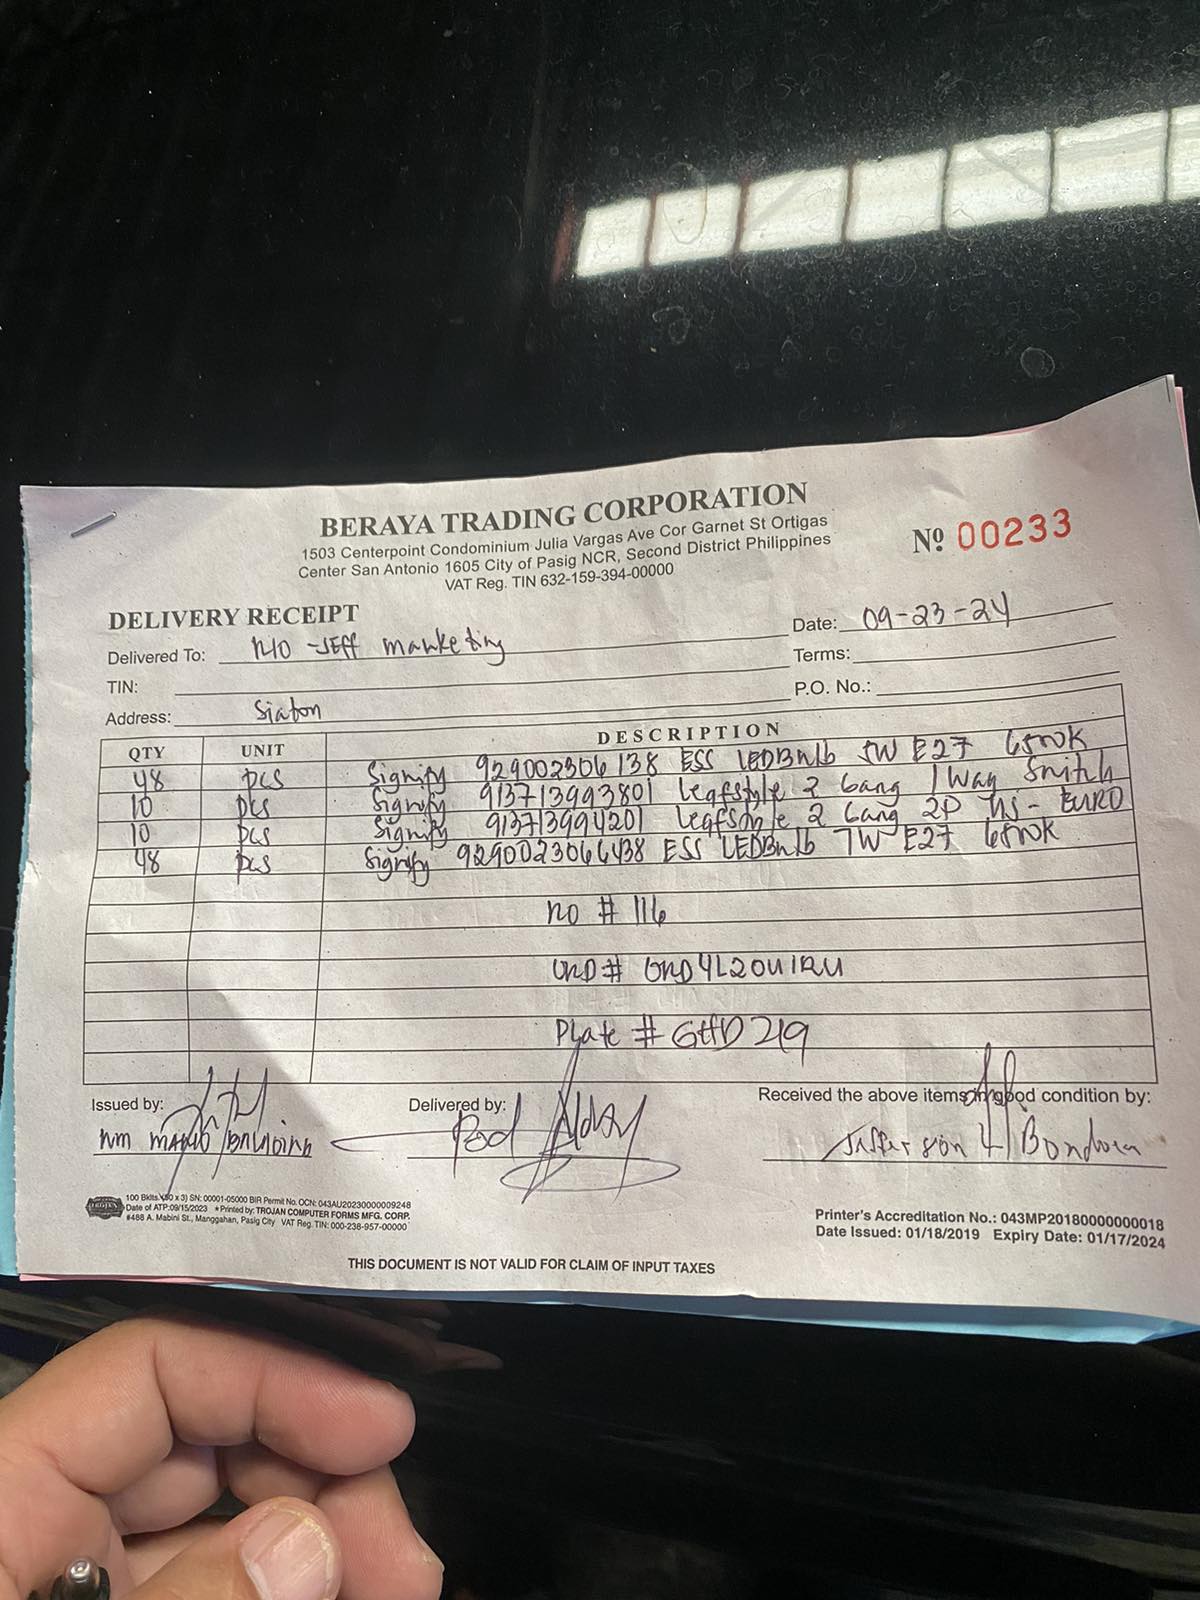 BERAYA TRADING CORPORATION
1503 Centerpoint Condominium Julia Vargas Ave Cor Garnet St Ortigas
Center San Antonio 1605 City of Pasig NCR, Second District Philippines
VAT Reg. TIN 632-159-394-00000
Nº 00233
DELIVERY RECEIPT
Date: 09-23-24
Delivered To: -Jeff marketing
Terms:
TIN:
P.O. No.:
Address: Siaton
QTY UNIT DESCRIPTION
48 pcs Signify 929002306138 ESS LEDBulb 5W E27 6500K
10 pcs Signify 913713993801 Leafstyle 2 Gang 1 Way Switch
10 pcs Signify 913713994201 Leafstyle 2 Gang 2P - EURO
48 pcs Signify ESS LEDBulb 7W E27 6500K
# 116
Plate # 219
Issued by:
Delivered by:
Received the above items in good condition by:
Jefferson
100 Bklts. (50 x 3) SN: 00001-05000 BIR Permit No. OCN: 043AU20230000009248
Date of ATP:09/15/2023 *Printed by: TROJAN COMPUTER FORMS MFG. CORP.
#488 A. Mabini St., Manggahan, Pasig City VAT Reg. TIN: 000-238-957-00000
Printer's Accreditation No.: 043MP20180000000018
Date Issued: 01/18/2019 Expiry Date: 01/17/2024
THIS DOCUMENT IS NOT VALID FOR CLAIM OF INPUT TAXES